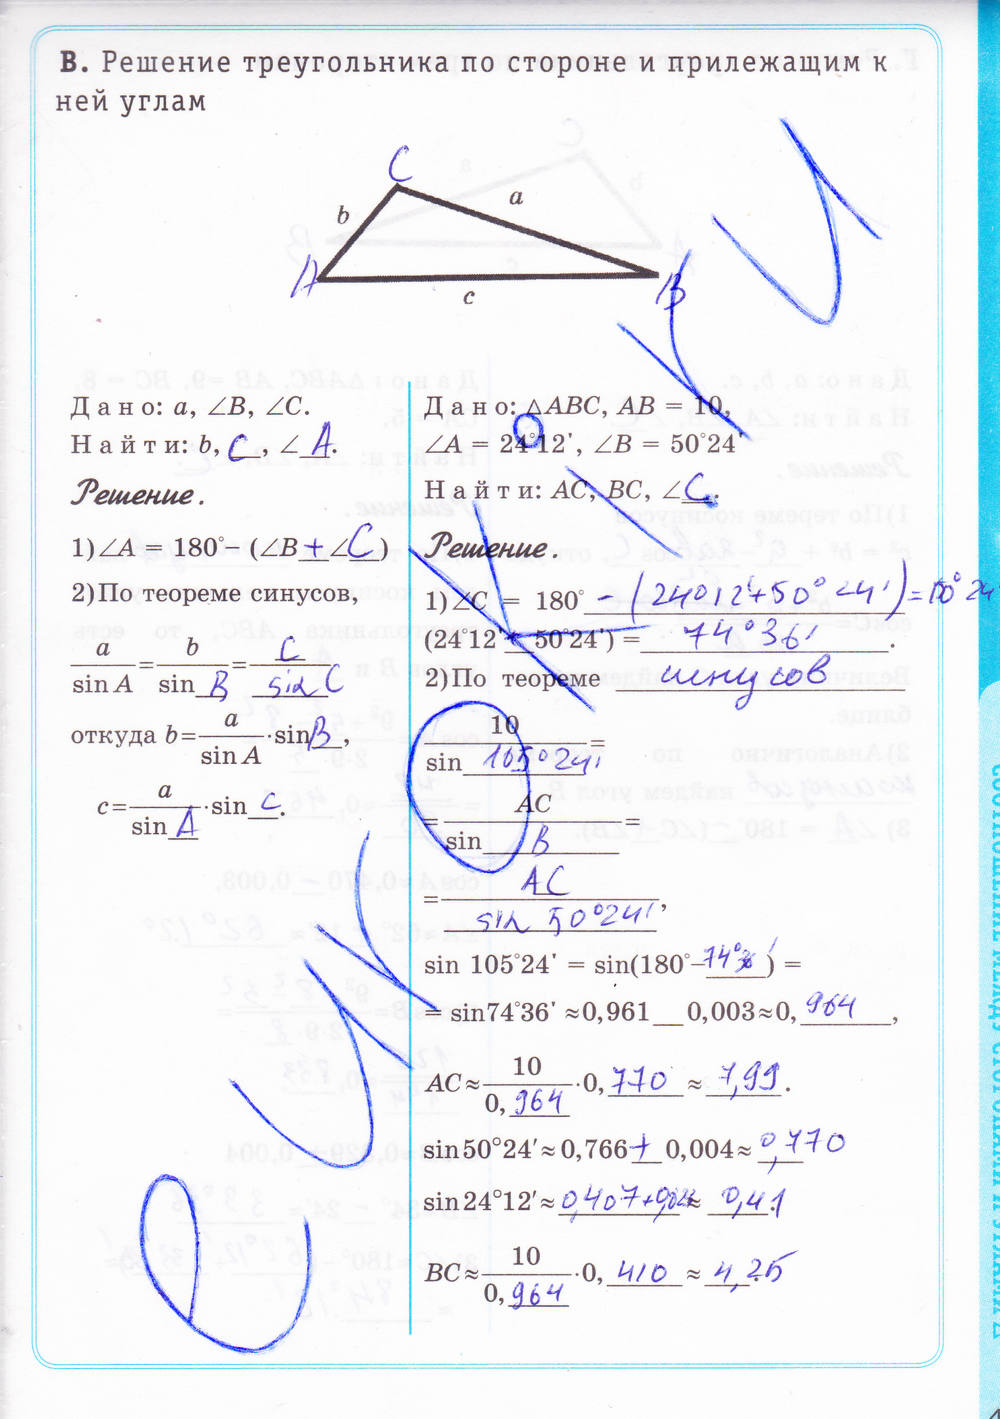 В. Решение треугольника по стороне и прилежащим к
ней углам
C
b
a
A
B
c
Дано: a, ∠B, ∠C.
Найти: b, C, ∠A.
Решение.
1) ∠A = 180° – (∠B + ∠C)
2) По теореме синусов,
a/sin A = b/sin B = C/sin C
откуда b = a/sin A · sin B,
c = a/sin A · sin C.
Дано: △ABC, AB = 10,
∠A = 24°12', ∠B = 50°24'
Найти: AC, BC, ∠C.
Решение.
1) ∠C = 180° – (24°12' + 50°24') =
(24°12' 50°24') = 74°36'.
2) По теореме синусов
10/sin 105°24' =
= AC/sin B =
= AC/sin 50°24',
sin 105°24' = sin(180° – 74°36') =
= sin74°36' ≈ 0,961 __ 0,003 ≈ 0,964,
AC ≈ 10/0,964 · 0,770 ≈ 7,99.
sin 50°24' ≈ 0,766 + 0,004 ≈ 0,770
sin 24°12' ≈ 0,407+0,00 ≈ 0,41
BC ≈ 10/0,964 · 0,410 ≈ 4,25